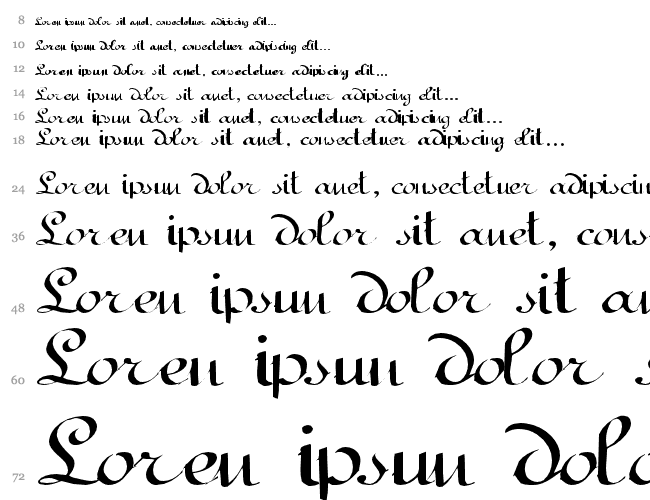 8 Lorem ipsum dolor sit amet, consectetuer adipiscing elit...
10 Lorem ipsum dolor sit amet, consectetuer adipiscing elit...
12 Lorem ipsum dolor sit amet, consectetuer adipiscing elit...
14 Lorem ipsum dolor sit amet, consectetuer adipiscing elit...
16 Lorem ipsum dolor sit amet, consectetuer adipiscing elit...
18 Lorem ipsum dolor sit amet, consectetuer adipiscing elit...
24 Lorem ipsum dolor sit amet, consectetuer adipiscin
36 Lorem ipsum dolor sit amet, cons
48 Lorem ipsum dolor sit am
60 Lorem ipsum dolor s
72 Lorem ipsum dolo